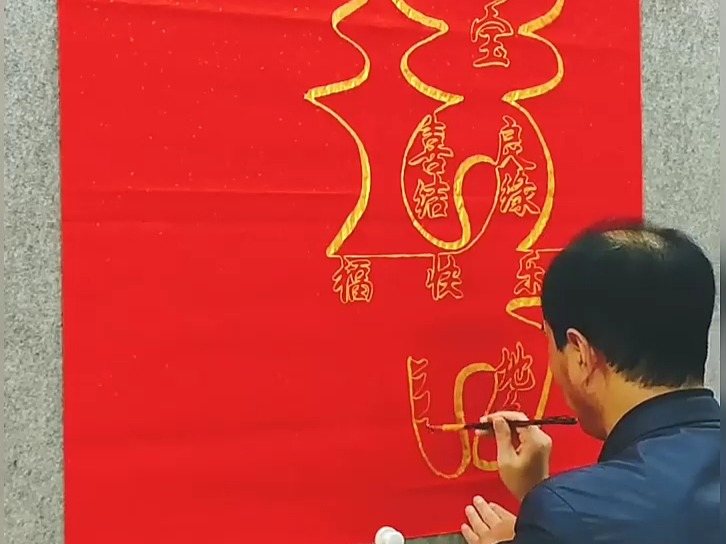 宝
喜结 良缘
福 快 乐
地